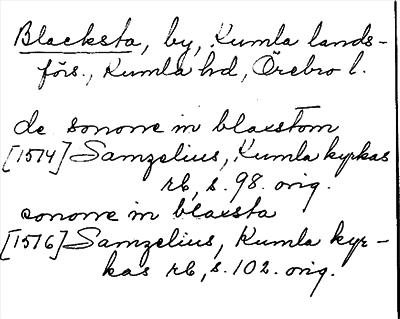 Blacksta, by, Kumla lands-
förs., Kumla hd, Örebro l.
de sonone in blaxstom
[1574] Samzelius, Kumla kyrkas
rb, s. 98. orig.
sonone in blaxsta
[1576] Samzelius, Kumla kyr-
kas rb, s. 102. orig.